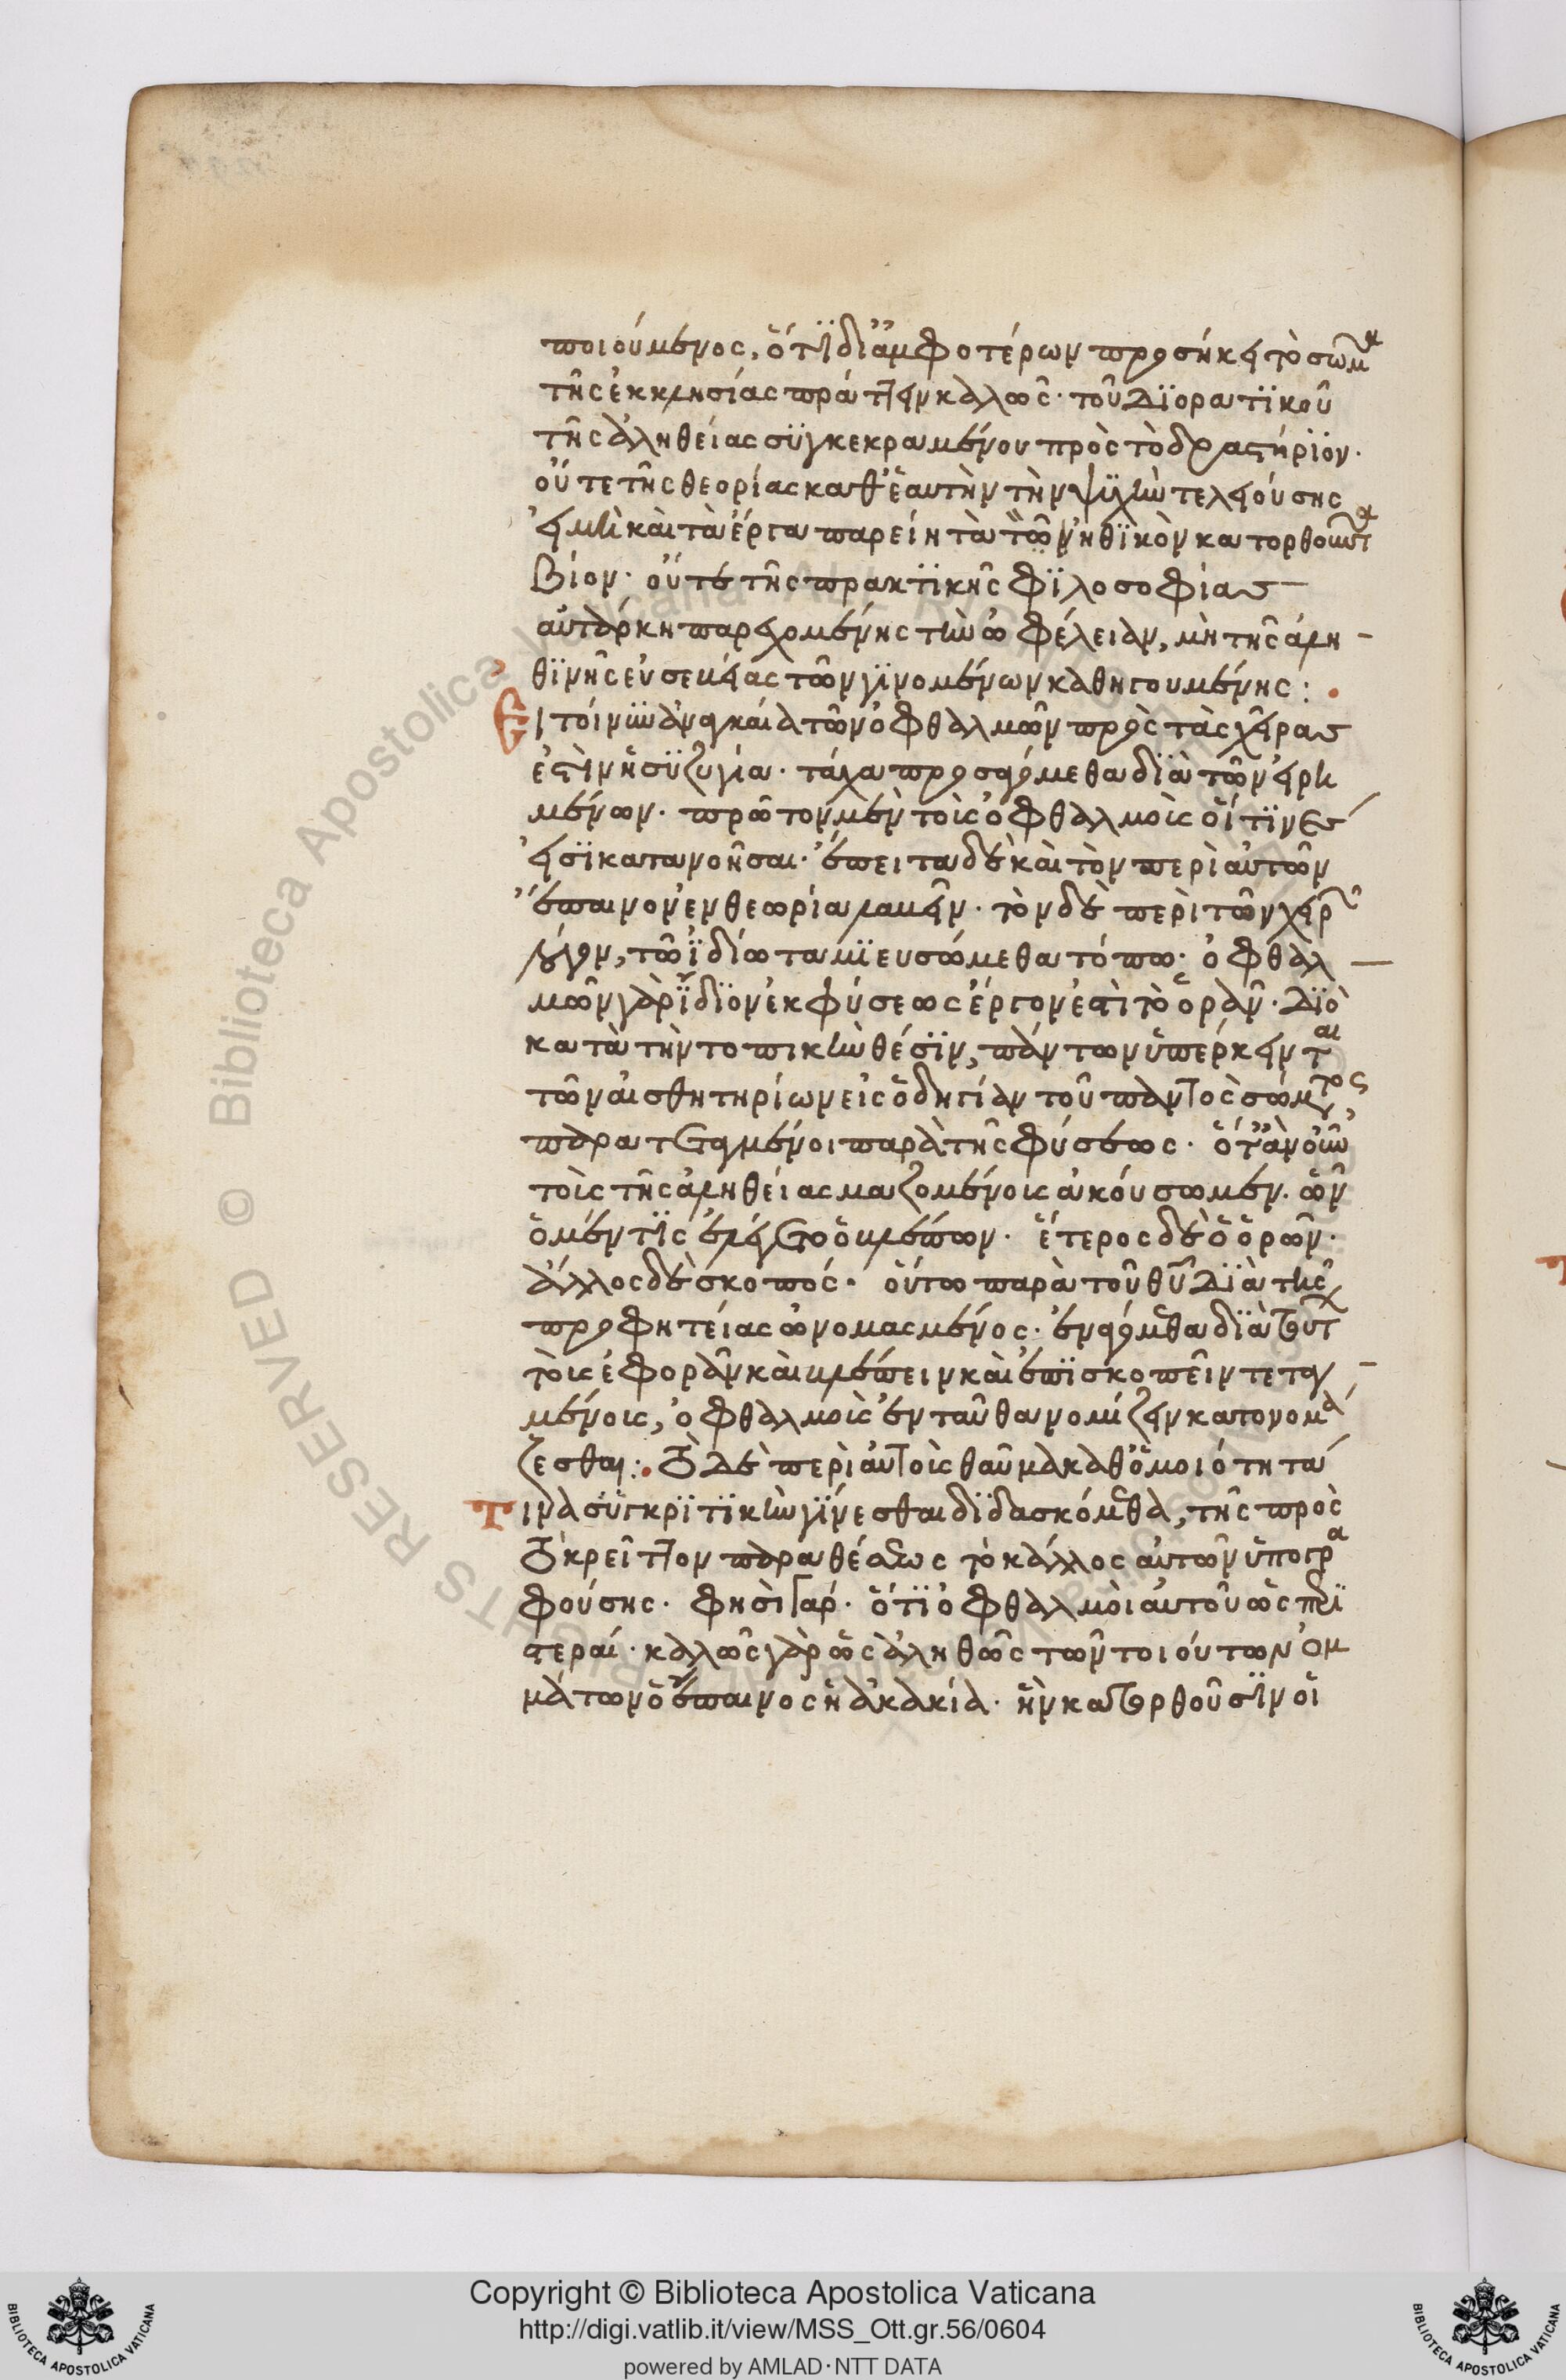 ποιούμενος, ὅτι δι' ἀμφοτέρων προσήκει τὸ σῶμα
τῆς ἐκκλησίας πράττειν καλῶς· τοῦ διορατικοῦ
τῆς ἀληθείας συγκεκραμένου πρὸς τὸ δραστήριον·
οὔτε τῆς θεορίας καθ' ἑαυτὴν τὴν ψυχὴν τελειούσης
εἰ μὴ καὶ τὰ ἔργα παρείη τὰ τὸν ἠθικὸν κατορθοῦντα
βίον· οὔτε τῆς πρακτικῆς φιλοσοφίας
αὐτάρκη παρεχομένης τὴν ὠφέλειαν, μὴ τῆς ἀλη-
θινῆς εὐσεβείας τῶν γινομένων καθηγουμένης:
Εἰ τοίνυν ἀναγκαία τῶν ὀφθαλμῶν πρὸς τὰς χεῖρας
ἐστὶν ἡ συζυγία· τάχα προσαγόμεθα διὰ τῶν εἰρη
μένων· πρῶτον μὲν τοῖς ὀφθαλμοῖς οἵτινες
εἰσὶ κατανοῆσαι· ἔπειτα δὲ καὶ τὸν περὶ αὐτῶν
ἔπαινον ἐν θεωρία λαβεῖν· τὸν δὲ περὶ τῶν χειρῶν
λόγον, τῶ ἰδίω ταμιευσώμεθα τόπω· ὀφθαλ-
μῶν γὰρ ἴδιον ἐκ φύσεως ἔργον ἐστὶ τὸ ὁρᾶν· διὸ
κατὰ τὴν τοπικὴν θέσιν, πάντων ὑπέρκεινται
τῶν αἰσθητηρίων εἰς ὁδηγίαν τοῦ παντὸς σώματος
παρατεταγμένοι παρὰ τῆς φύσεως· ὅταν οὖν
τοῖς τῆς ἀληθείας μαζομένοις ἀκούσωμεν· ὧν
ὁ μέν τις ἐλέγετο ὁ βλέπων· ἕτερος δὲ ὁ ὁρῶν·
ἄλλος δὲ σκοπός· οὕτω παρὰ τοῦ θυ διὰ τῆς
προφητείας ὠνομασμένος· ἐναγόμεθα διὰ τούτ
τοῖς ἐφορᾶν καὶ βλέπειν καὶ ἐπισκοπεῖν τεταγ-
μένοις, ὀφθαλμοῖς ἐνταῦθα νομίζειν κατονομά
ζεσθαι: τὸ δὲ περὶ αὐτοῖς θαῦμα καθ' ὁμοιότητά
τινα συγκριτικὴν γίνεσθαι διδασκόμεθα, τῆς πρὸς
τὸ κρεῖττον παραθέσεως τὸ κάλλος αὐτῶν ὑπογρα
φούσης· φησὶ γάρ· ὅτι ὀφθαλμοὶ αὐτοῦ ὡς περι
στεραί· καλῶς γὰρ ὡς ἀληθῶς τῶν τοιούτων ὀμ
μάτων ὁ ἔπαινος ἡ ἀκακία· ἣν κατορθοῦσιν οἱ
Copyright © Biblioteca Apostolica Vaticana
http://digi.vatlib.it/view/MSS_Ott.gr.56/0604
powered by AMLAD·NTT DATA
BIBLIOTECA APOSTOLICA VATICANA
BIBLIOTECA APOSTOLICA VATICANA